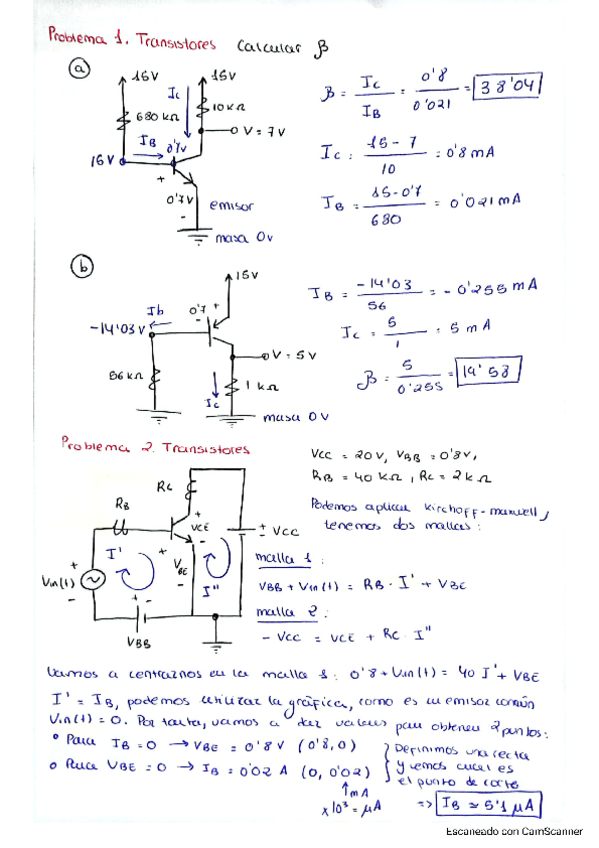 Problema 1. Transistores Calcular β
a
15V 15V
Ic
680 kΩ 10kΩ
IB 0'7V V = 7V
15V
+
0'7V emisor
-
masa 0v
β = Ic / IB = 0'8 / 0'021 = 38'04
Ic = 15 - 7 / 10 = 0'8 mA
IB = 15 - 0'7 / 680 = 0'021 mA
b
15V
Ib 0'7 +
-14'03 V -
V = 5V
56 kΩ 1 kΩ
Ic
masa 0V
IB = -14'03 / 56 = -0'255 mA
Ic = 5 / 1 = 5 mA
β = 5 / 0'255 = 19'53
Problema 2. Transistores
Vcc = 20V, VBB = 0'8V,
RB = 40 kΩ, Rc = 2kΩ
Podemos aplicar Kirchoff-maxwell,
tenemos dos mallas:
Rc
RB
VCE
± Vcc
+ I' VBE I''
Vin(t)
-
+ -
VBB
malla 1:
VBB + Vin(t) = RB · I' + VBE
malla 2:
- Vcc = VCE + Rc I''
Vamos a centrarnos en la malla 1: 0'8 + Vin(t) = 40 I' + VBE
I' = IB, podemos utilizar la gráfica, como es un emisor común
Vin(t) = 0. Por tanto, vamos a dar valores para obtener 2 puntos:
Para IB = 0 → VBE = 0'8 V (0'8, 0)
Para VBE = 0 → IB = 0'02 A (0, 0'02)
Definimos una recta
y vemos cual es
el punto de corte
↑ mA
x10³ = μA
=> IB ≃ 5'1 μA
Escaneado con CamScanner